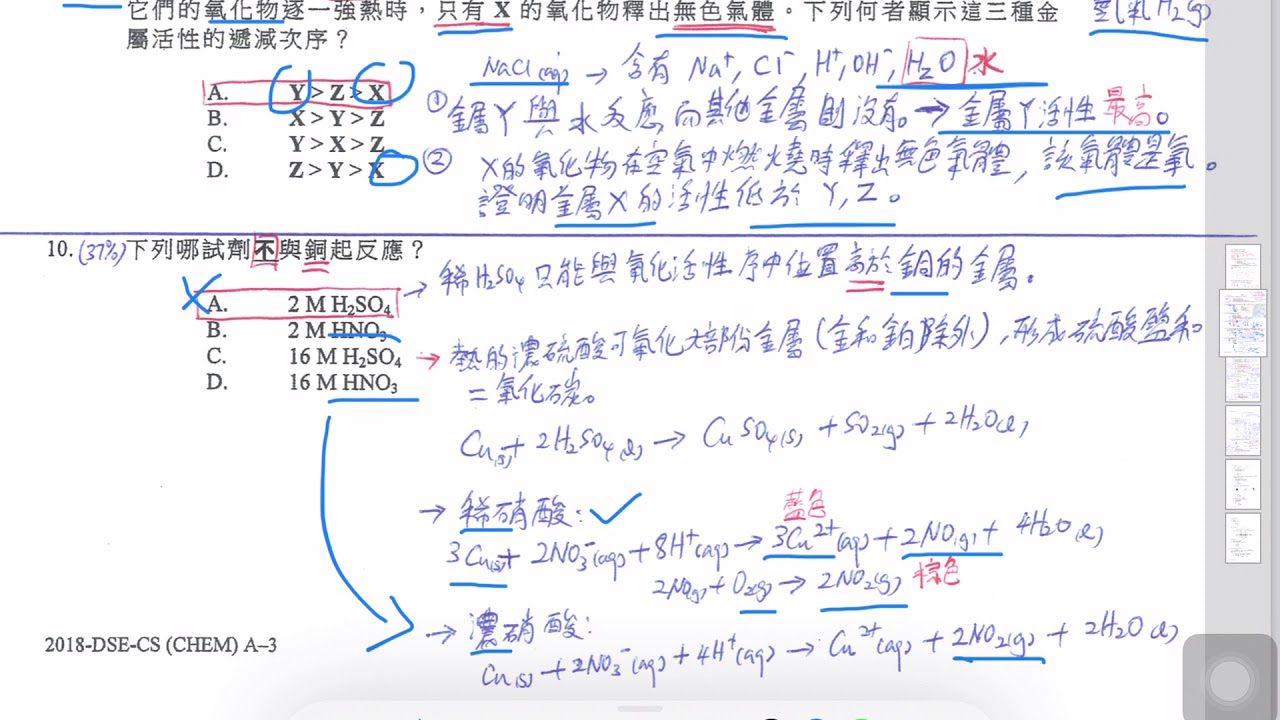 它們的氧化物逐一強熱時，只有 X 的氧化物釋出無色氣體。下列何者顯示這三種金
屬活性的遞減次序？
A. Y > Z > X
B. X > Y > Z
C. Y > X > Z
D. Z > Y > X
NaCl(aq) → 含有 Na⁺, Cl⁻, H⁺, OH⁻, H₂O 水
① 金屬Y與水反應而其他金屬則沒有。→ 金屬Y活性最高。
② X的氧化物在空氣中燃燒時釋出無色氣體，該氣體是氧。
證明金屬X的活性低於 Y, Z。
10. (37%) 下列哪試劑不與銅起反應？
A. 2 M H₂SO₄
B. 2 M HNO₃
C. 16 M H₂SO₄
D. 16 M HNO₃
→ 稀H₂SO₄只能與氧化活性序中位置高於銅的金屬。
→ 熱的濃硫酸可氧化大部份金屬(金和鉑除外),形成硫酸鹽和
二氧化碳。
Cu(s) + 2H₂SO₄(l) → CuSO₄(s) + SO₂(g) + 2H₂O(l)
→ 稀硝酸: ✓
藍色
3Cu(s) + 2NO₃⁻(aq) + 8H⁺(aq) → 3Cu²⁺(aq) + 2NO(g) + 4H₂O(l)
2NO(g) + O₂(g) → 2NO₂(g) 棕色
→ 濃硝酸:
Cu(s) + 2NO₃⁻(aq) + 4H⁺(aq) → Cu²⁺(aq) + 2NO₂(g) + 2H₂O(l)
2018-DSE-CS (CHEM) A–3